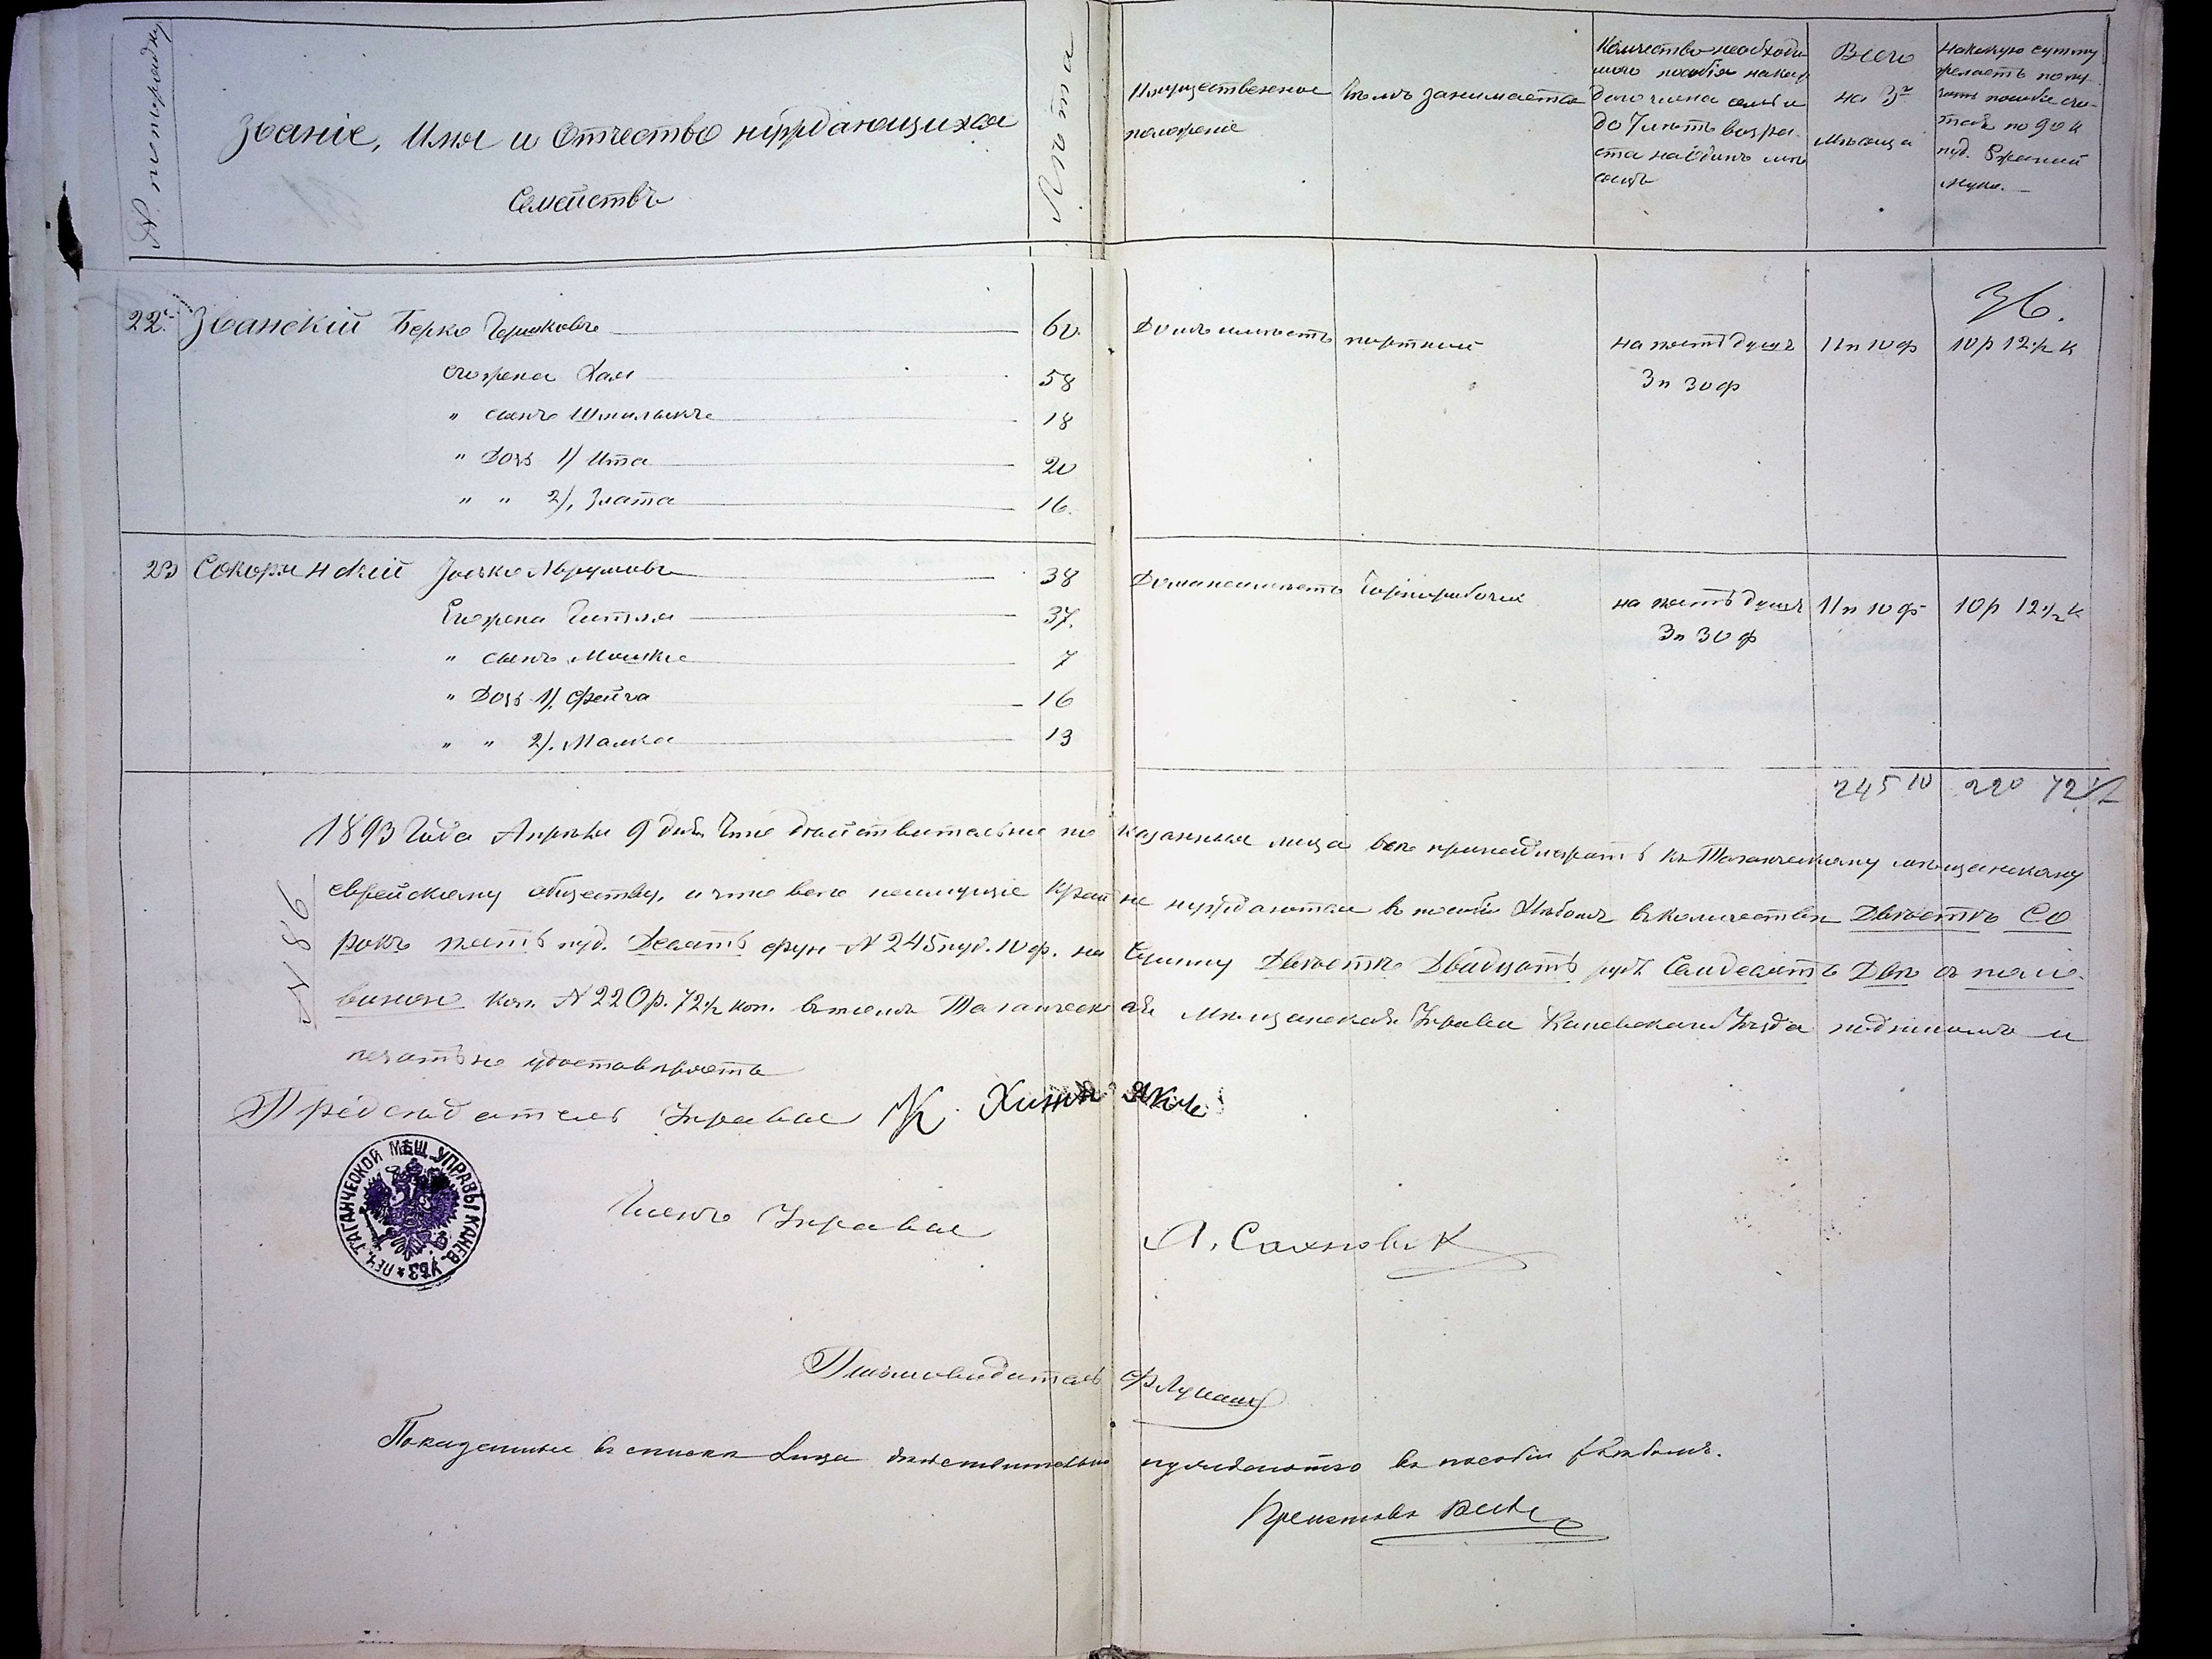 № по порядку
Званіе, Имя и Отчество нуждающихся
Семействъ
Лѣта
Имущественное
положеніе
Чѣмъ занимается
Количество необходи
маго пособія на каж
даго члена семьи
до 7 лѣтъ возра-
ста на Одинъ мѣ
сяцъ
Всего
на 3и
Мѣсяца
На какую сумму
желаетъ полу-
чить пособіе счи-
тая по 90 к
пуд. Ржаной
муки.
36.
22. Званскій Берко Гершковъ 60 Домъ имѣетъ портной на пять душъ 11 п 10 ф 10 р 12 ½ к
его жена Хая 58 3 п 30 ф
" сынъ Шмилыкъ 18
" Дочь 1/ Ита 20
" " 2/, Злата 16.
23 Сокорянскій Іоські Аврумовъ 38 Дома неимѣетъ Чорнорабочій на пять душъ 11 п 10 ф 10 р 12 ½ к
Его жена Гитля 37. 3 п 30 ф
" сынъ Мошко 7
" Дочь 1/, Фейга 16
" " 2/. Малка 13
245 10 220 72 ½
1893 Года Апрѣля 9 дня Что дѣйствительно показанныя лица всѣ принадлежатъ къ Таганческому мѣщанскому
еврейскому обществу, и что всѣ неимущіе крайне нуждаются въ пособіи Хлѣбомъ въ количествѣ Двѣстѣ Со
рокъ пять пуд. Десять фун № 245 пуд. 10 ф. на Сумму Двѣстѣ Двадцать руб. Семдесятъ Двѣ съ поло-
виною коп. № 220 р. 72 ½ коп. въ томъ Таганческая Мѣщанская Управа Каневскаго Уѣзда подписомъ и
печатью удостовѣряетъ
№ 86
Предсѣдатель Управы К.
ПЕЧ. ТАГАНЧЕСКОЙ МѢЩ. УПРАВЫ КАНЕВ. УѢЗ.
Членъ Управы А. Сахновск
Письмоводитель Ф Луцаш
Показанные въ списке Лица дѣйствительно нуждаются въ пособіи хлѣбомъ.